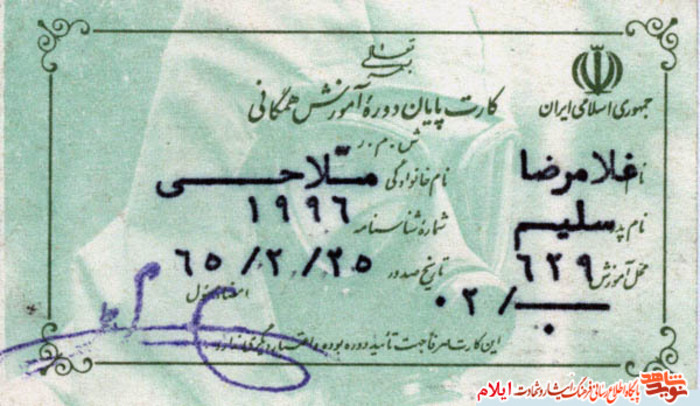 بسمه تعالی
جمهوری اسلامی ایران
کارت پایان دورهٔ آموزش همگانی
ش . م . ر
نام غلامرضا نام خانوادگی ملاحی
نام پدر سلیم شمارهٔ شناسنامه ۱۹۹۶
محل آموزش ۶۲۹ تاریخ صدور ۶۵/۲/۲۵
۰۲/۰
امضاء مسئول
این کارت صرفاً جهت تأیید دوره بوده و اعتبار دیگری ندارد
نوید شاهد
پایگاه اطلاع رسانی فرهنگ ایثار و شهادت ایلام